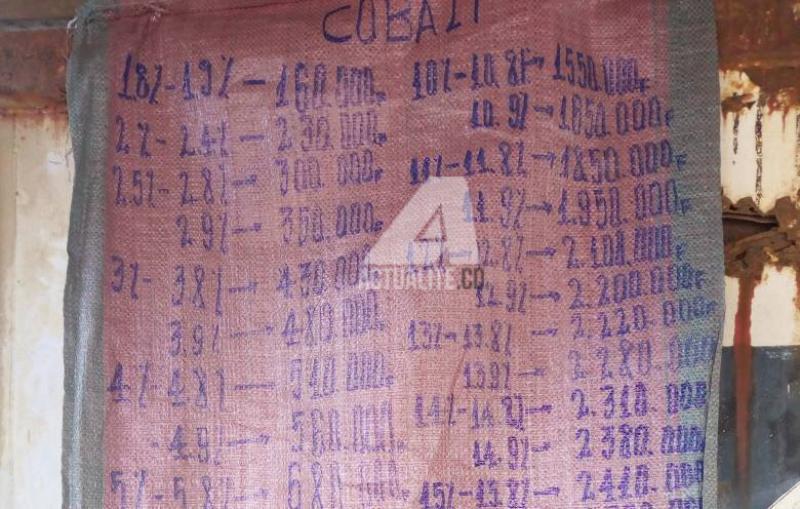 COBALT
1.8%-1.9% → 160.000F
2%-2.4% → 230.000F
2.5%-2.8% → 300.000F
2.9% → 350.000F
3%-3.8% → 430.000
3.9% → 480.000
4%-4.8% → 510.000F
-4.9% → 560.000
5%-5.8% → 680.000
10%-10.8% → 1550.000F
10.9% → 1650.000F
11%-11.8% → 1850.000F
11.9% → 1.950.000F
2.8% → 2.100.000F
12.9% → 2.200.000F
13%-13.8% → 2.220.000F
13.9% → 2.280.000F
14%-14.8% → 2.310.000
14.9% → 2.380.000
15%-15.8% → 2.410.000
ACTUALITE.CD